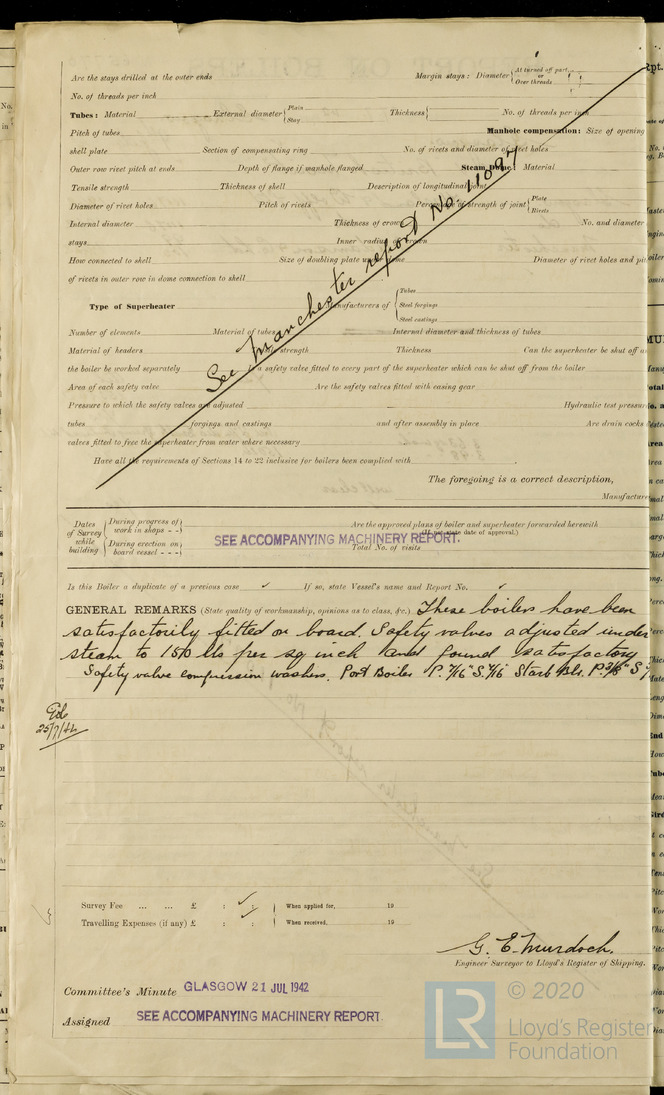 Are the stays drilled at the outer ends Margin stays: Diameter { At turned off part or Over threads
No. of threads per inch
Tubes: Material External diameter { Plain Stay Thickness { No. of threads per inch
Pitch of tubes Manhole compensation: Size of opening
shell plate Section of compensating ring No. of rivets and diameter of rivet holes
Outer row rivet pitch at ends Depth of flange if manhole flanged Steam Dome: Material
Tensile strength Thickness of shell Description of longitudinal joint
Diameter of rivet holes Pitch of rivets Percentage of strength of joint { Plate Rivets
Internal diameter Thickness of crown No. and diameter
stays Inner radius of crown
How connected to shell Size of doubling plate under dome Diameter of rivet holes and
of rivets in outer row in dome connection to shell
See Manchester report No. 11097
Type of Superheater Manufacturers of { Tubes Steel forgings Steel castings
Number of elements Material of tubes Internal diameter and thickness of tubes
Material of headers strength Thickness Can the superheater be shut off
the boiler be worked separately a safety valve fitted to every part of the superheater which can be shut off from the boiler
Area of each safety valve Are the safety valves fitted with easing gear
Pressure to which the safety valves are adjusted Hydraulic test pressure
tubes forgings and castings and after assembly in place Are drain cocks
valves fitted to free the superheater from water where necessary
Have all the requirements of Sections 14 to 22 inclusive for boilers been complied with
The foregoing is a correct description,
Manufacturer
Dates of Survey while building { During progress of work in shops - - } During erection on board vessel - - - }
Are the approved plans of boiler and superheater forwarded herewith
(If not state date of approval.)
SEE ACCOMPANYING MACHINERY REPORT.
Total No. of visits
Is this Boiler a duplicate of a previous case ✓ If so, state Vessel's name and Report No. ✓
GENERAL REMARKS (State quality of workmanship, opinions as to class, &c.) These boilers have been
satisfactorily fitted on board. Safety valves adjusted under
steam to 150 lbs per sq inch and found satisfactory
Safety valve compression washers. Port Boiler P. 7/16" S. 7/16" Starb
25/7/42
Survey Fee ... ... £ : ✓ : When applied for, 19
Travelling Expenses (if any) £ : ✓ : When received, 19
G. E. Murdoch.
Engineer Surveyor to Lloyd's Register of Shipping.
Committee's Minute GLASGOW 21 JUL 1942
Assigned SEE ACCOMPANYING MACHINERY REPORT.
LR © 2020
Lloyd's Register
Foundation